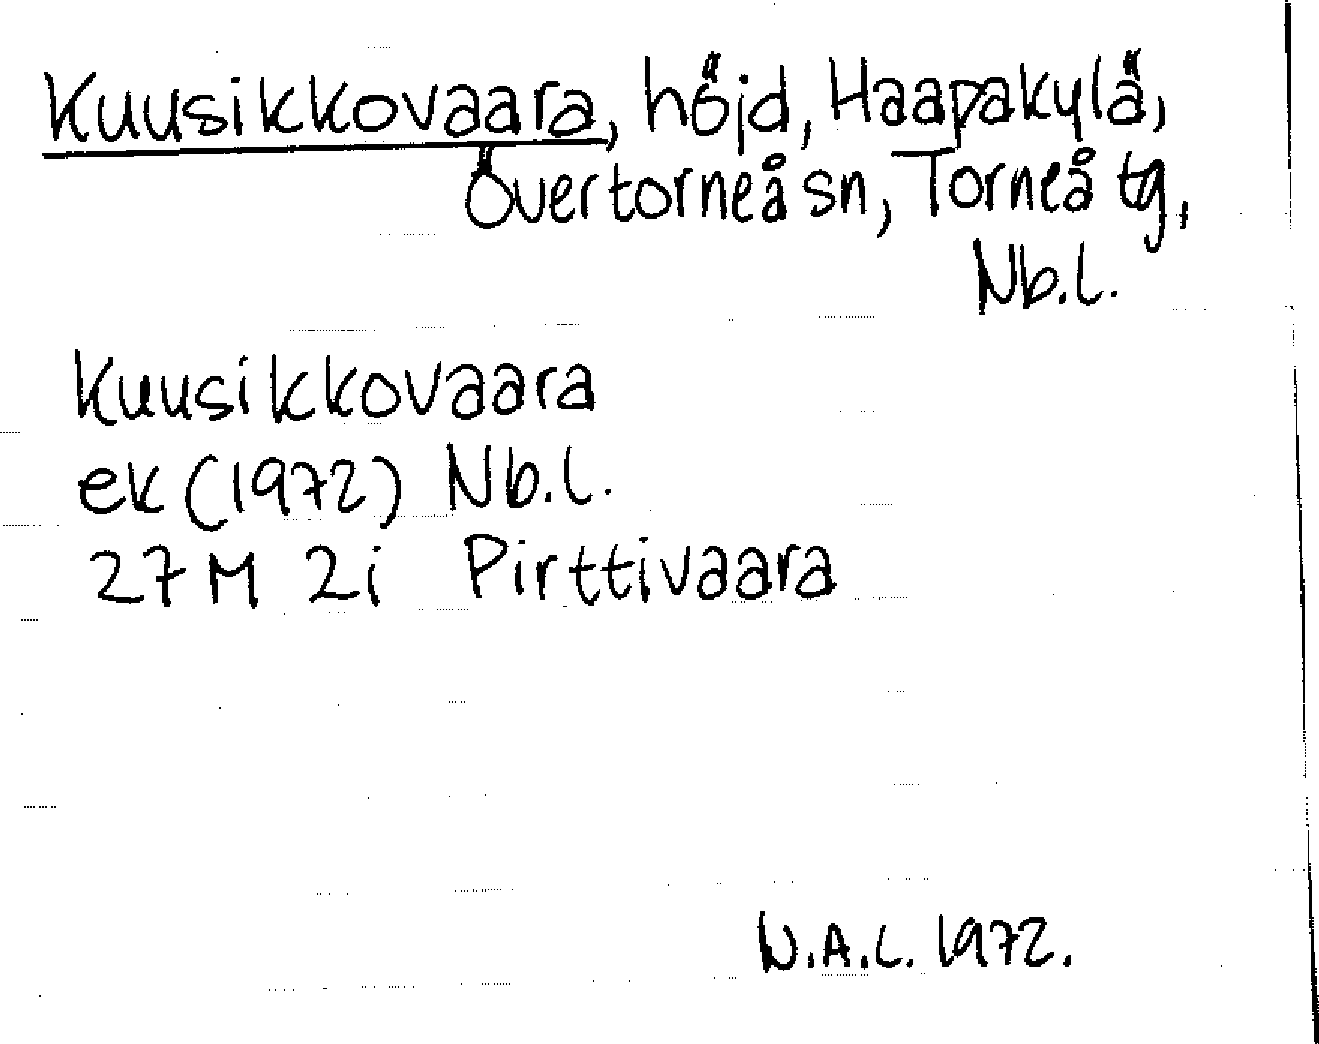 Kuusikkovaara, höjd, Haapakylä,
Övertorneå sn, Torneå tg,
Nb.l.
Kuusikkovaara
ek (1972) Nb.l.
27 M 2i Pirttivaara
N.A.L. 1972.